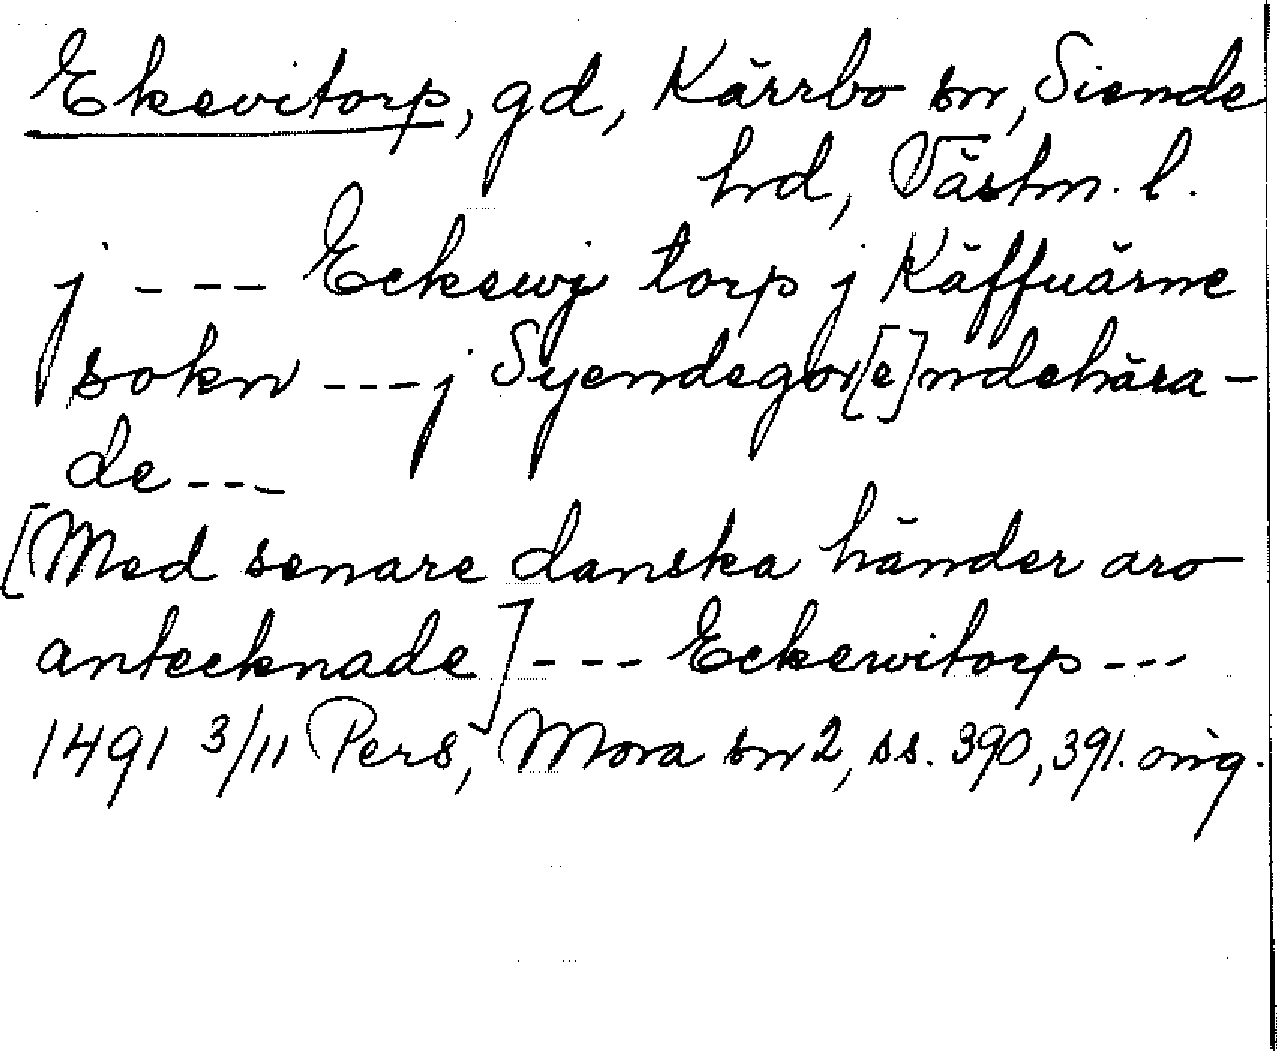 Ekevitorp, gd, Kärrbo sn, Siende
hd, Västm. l.
j --- Eckewj torp j Käffuärne
sokn --- j Syendegor[e]ndehära-
de ---
[Med senare danska händer äro
antecknade] --- Eckewitorp ---
1491 3/11 Pers, Mora sn 2, ss. 390, 391. orig.